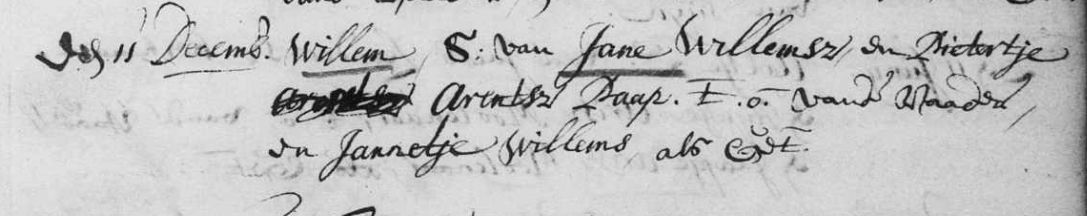 Den 11 Decemb. Willem, S: van Jane Willemsz, en Pietertje
Arentsz Paap. T. o. vand Vaader,
en Jannetje Willems als Get.